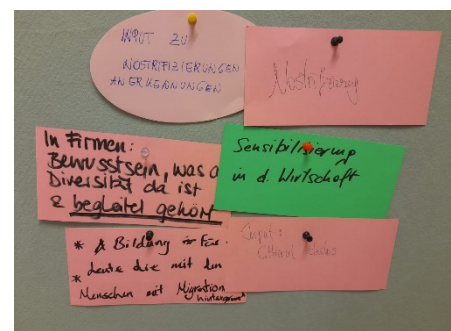 INPUT ZU
NOSTRIFIZIERUNGEN
ANERKENNUNGEN
Nostrifizierung
In Firmen:
Bewusstsein, was a
Diversität da ist
& begleitet gehört
Sensibilisierung
in d. Wirtschaft
* Bildung für
* Leute die mit den
Menschen mit Migrations
hintergrund
Input: